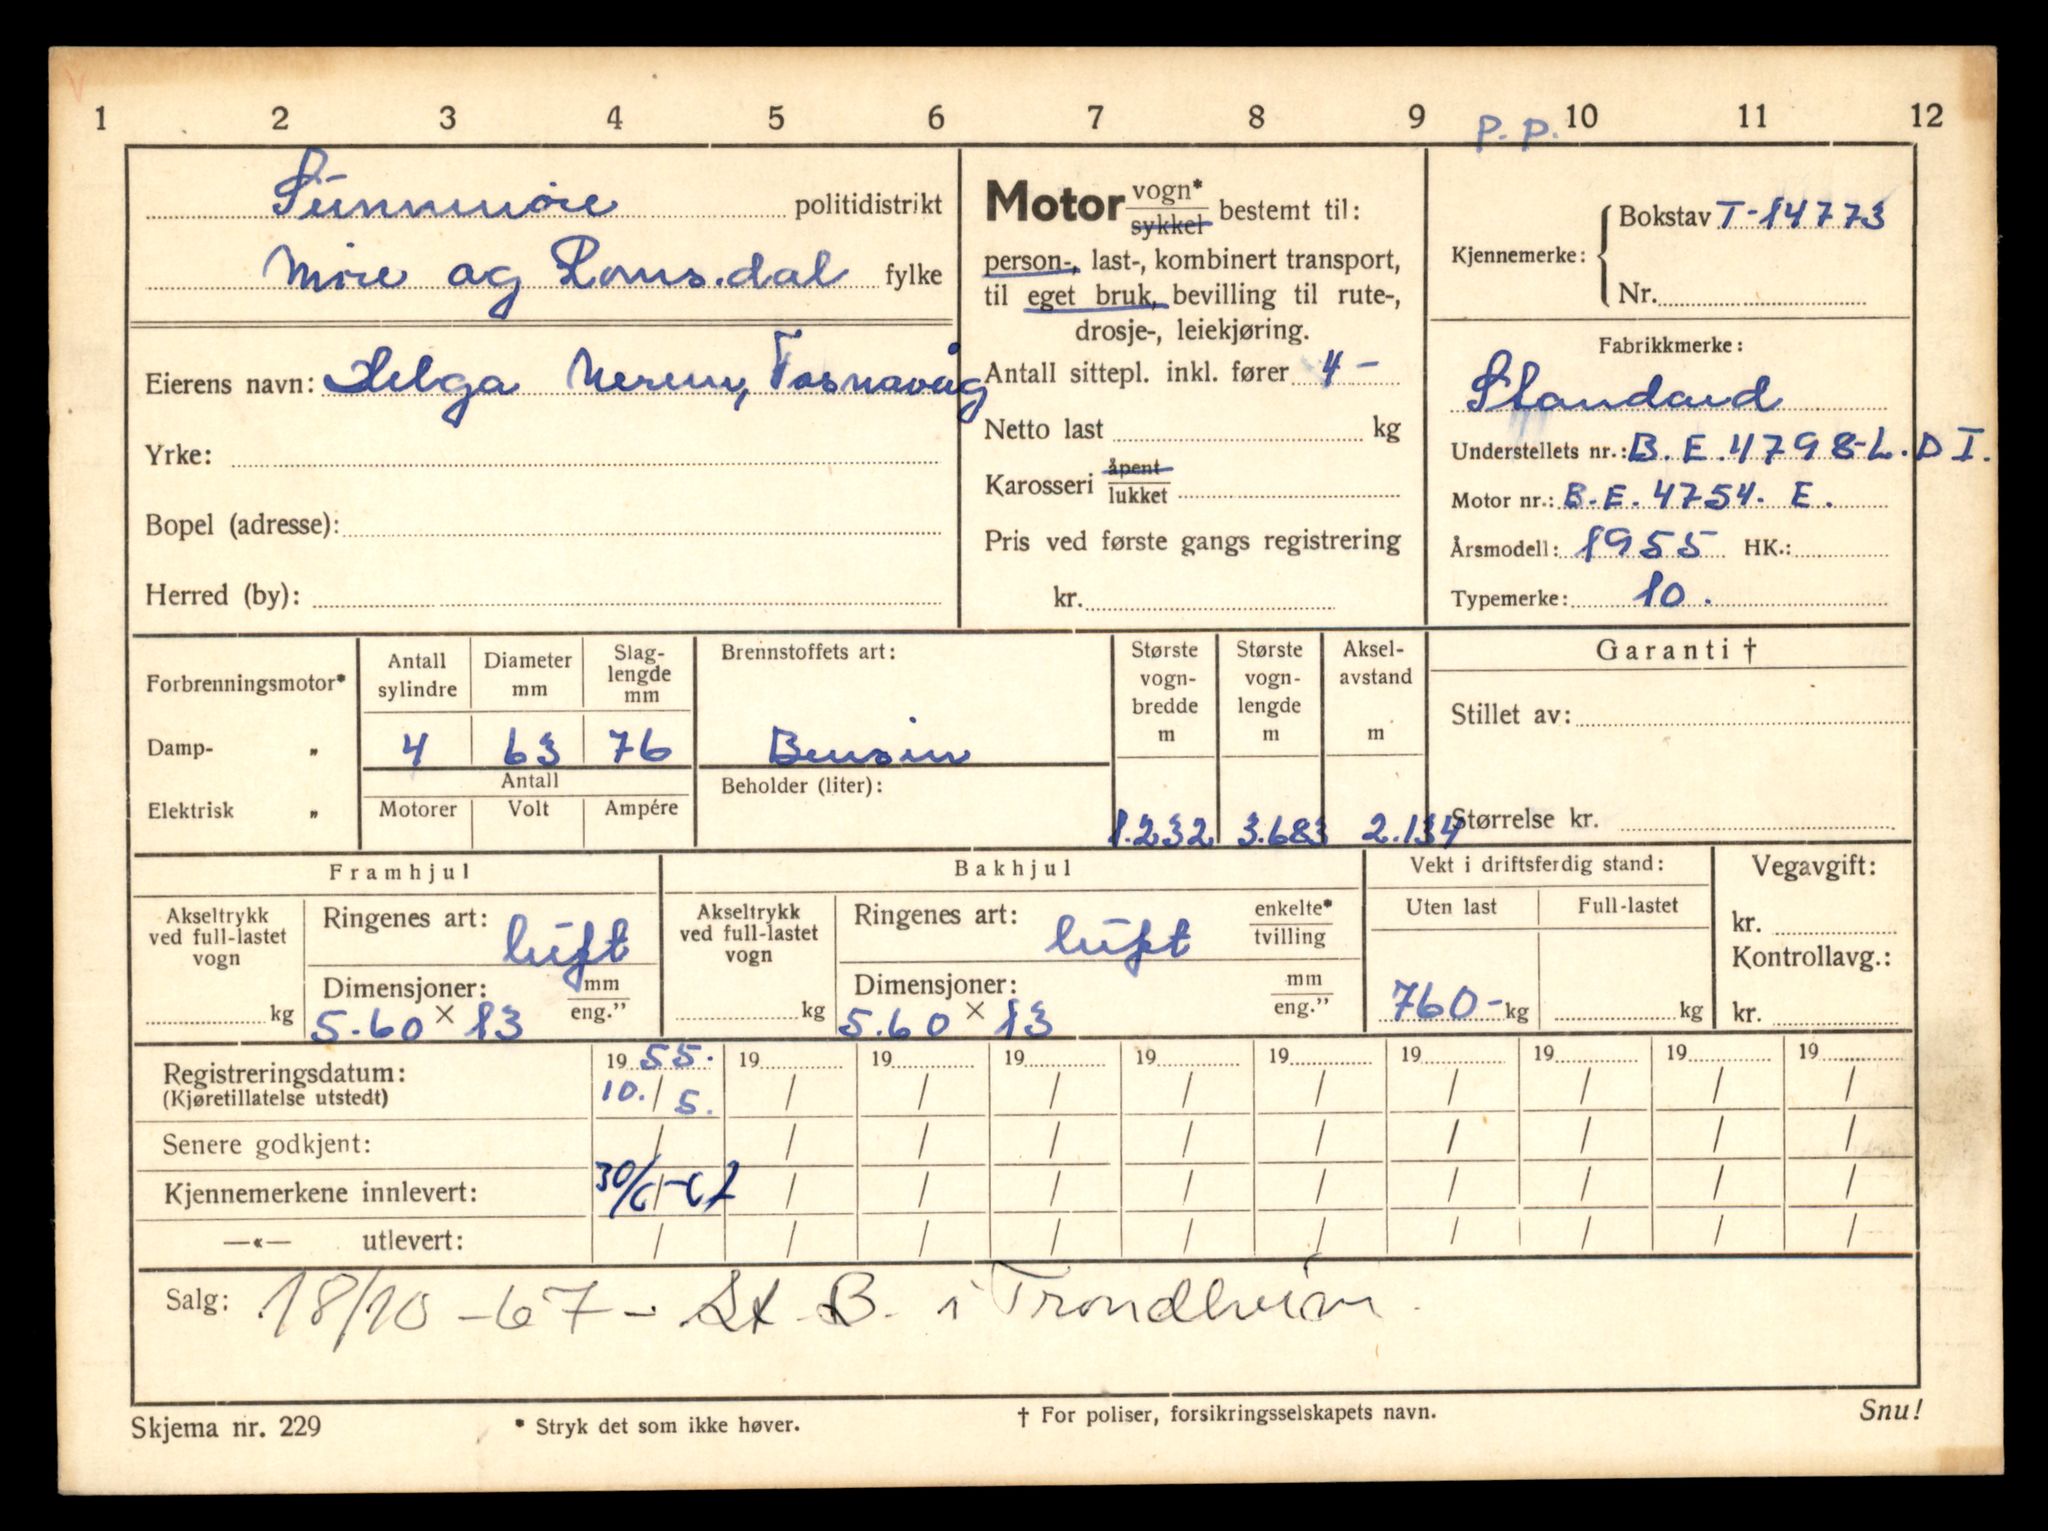 1 2 3 4 5 6 7 8 9 10 11 12
P. P.
Sunnmöre politidistrikt
Möre og Romsdal fylke
Eierens navn: Helga Nerem, Fosnavåg
Yrke:
Bopel (adresse):
Herred (by):
Motor vogn* sykkel bestemt til:
person-, last-, kombinert transport,
til eget bruk, bevilling til rute-,
drosje-, leiekjøring.
Antall sittepl. inkl. fører 4 -
Netto last kg
Karosseri åpent lukket
Pris ved første gangs registrering
kr.
Kjennemerke: Bokstav T-14773
Nr.
Fabrikkmerke:
Standard
Understellets nr.: B. E. 4798-L. D I.
Motor nr.: B. E. 4754. E.
Årsmodell: 1955 HK.:
Typemerke: 10.
Forbrenningsmotor*
Damp- „
Elektrisk „
Antall sylindre 4
Diameter mm 63
Slag-lengde mm 76
Antall
Motorer Volt Ampére
Brennstoffets art:
Bensin
Beholder (liter):
Største vogn-bredde m 1.232
Største vogn-lengde m 3.683
Aksel-avstand m 2.134
Garanti †
Stillet av:
Størrelse kr.
Framhjul
Akseltrykk ved full-lastet vogn kg
Ringenes art: luft
Dimensjoner: mm eng.”
5.60 × 13
Bakhjul
Akseltrykk ved full-lastet vogn kg
Ringenes art: luft enkelte* tvilling
Dimensjoner: mm eng.”
5.60 × 13
Vekt i driftsferdig stand:
Uten last Full-lastet
760- kg kg
Vegavgift:
kr.
Kontrollavg.:
kr.
19 55. 19 19 19 19 19 19 19 19 19
Registreringsdatum: 10. / 5. / / / / / / / / /
(Kjøretillatelse utstedt)
Senere godkjent: / / / / / / / / / /
Kjennemerkene innlevert: 30/6-67 / / / / / / / / /
—«— utlevert: / / / / / / / / / /
Salg: 18/10 - 67 - St. B. i Trondheim.
Skjema nr. 229 * Stryk det som ikke høver. † For poliser, forsikringsselskapets navn. Snu!